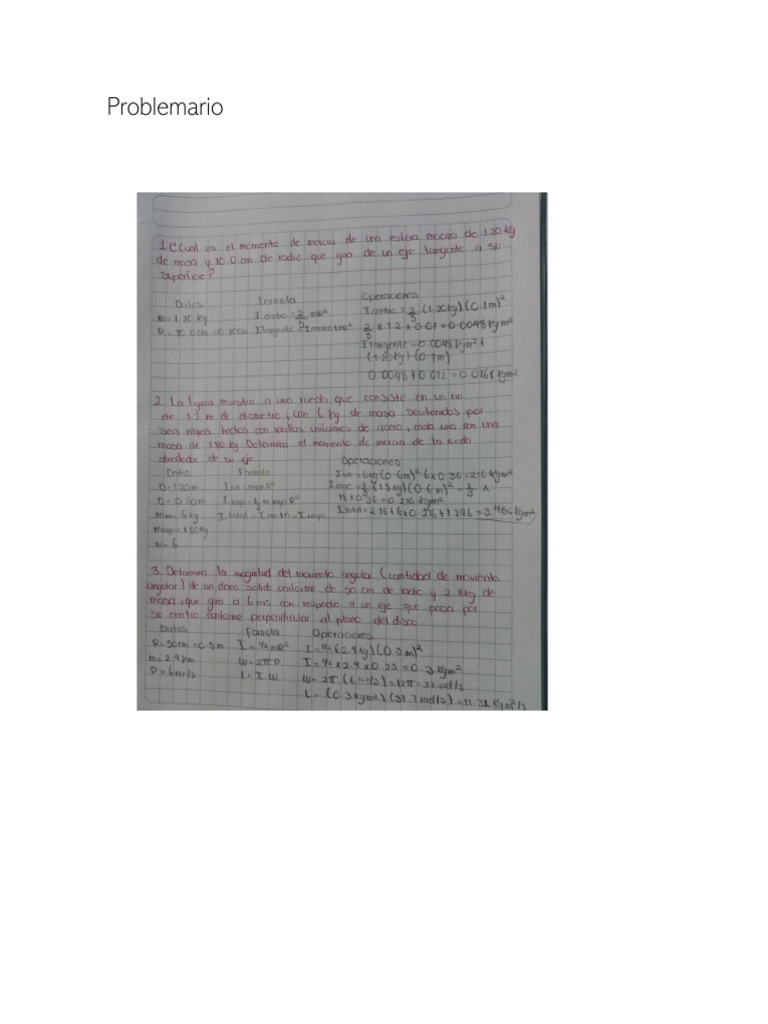 Problemario
1. ¿Cual es el momento de inercia de una esfera maciza de 1.20 kg
de masa y 10.0 cm de radio que gira de un eje tangente a su
superficie?
Datos Formula Operaciones
m= 1.20 kg I centro = 2/5 mR² I centro = 2/5 (1.20kg)(0.1m)²
R= 10.0cm = 0.10cm I tangente = I centro + mR² 2/5 x 1.2 x 0.01 = 0.0048 kg m²
I tangente = 0.0048 kgm² +
(1.20kg)(0.1m)
0.0048 + 0.012 = 0.0168 kgm²
2. La figura muestra a una rueda que consiste en un rin
de 1.2 m de diametro, con 6 kg de masa sostenidos por
seis rayos hechos con varillas de acero, cada una con una
masa de 1.80 kg Determina el momento de inercia de la rueda
alrededor de su eje
Datos Formula Operaciones
D= 1.20m I rin = m rin R² I rin = 6kg (0.6m)² 6x0.36 = 2.16 kgm²
0= 0.60m I rayo = 1/3 m rayo R² (1.8kg)(0.6m)² = 1/3 x
m rin= 6kg I total = I rin + n = I rayo 1.8 x 0.36 = 0.216 kgm²
m rayo= 1.80kg I total = 2.16 + 6 x 0.216 + 1.296 = 3.456 kgm²
n= 6
3. Determina la magnitud del movimiento angular (cantidad de movimiento
angular) de un disco solido uniforme de 50 cm de radio y 2.4kg de
masa, que gira a 6 rev/s con respecto a un eje que pasa por
su centro perpendicular al plano del disco.
Datos Formula Operaciones
R= 50cm = 0.5m I = 1/2 mR² I = 1/2 (2.4kg)(0.5m)²
m= 2.4 W = 2π P I = 1/2 x 2.4 x 0.25 = 0.3 kgm²
P = 6 rev/s L = I W W= 2π (6 rev/s) = 12π = 37 rad/s
L = (0.3kgm²)(37.7 rad/s) = 11.31 Kgm²/s